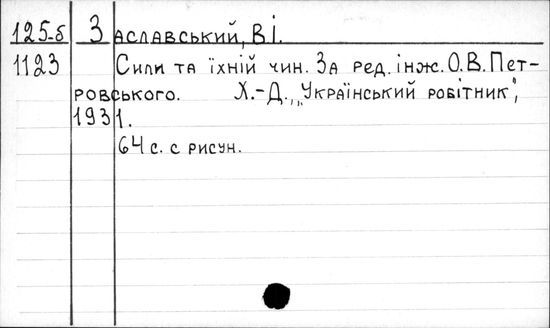 125-б Заславський, В.І.
1123 Сили та їхній чин. За ред. інж. О.В. Пет-
ровського. Х.-Д., „Український робітник",
1931.
64 с. с рисун.